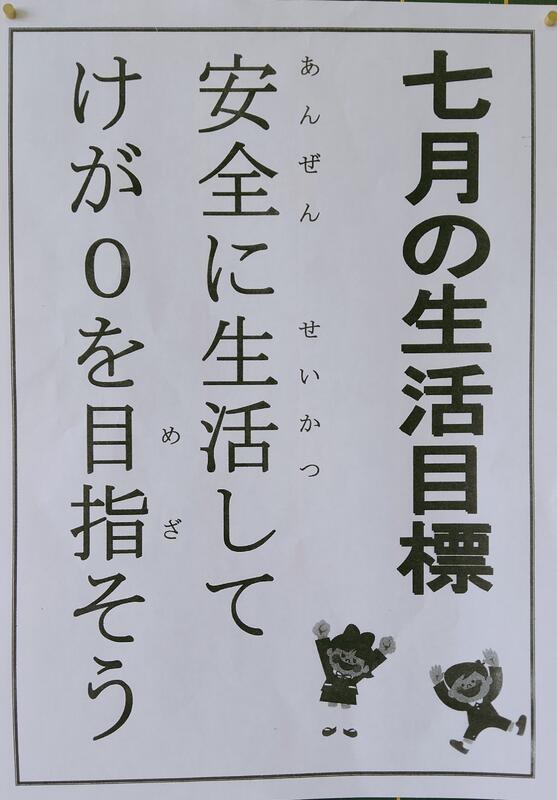 七月の生活目標
あんぜん　せいかつ
安全に生活して
めざ
けが０を目指そう